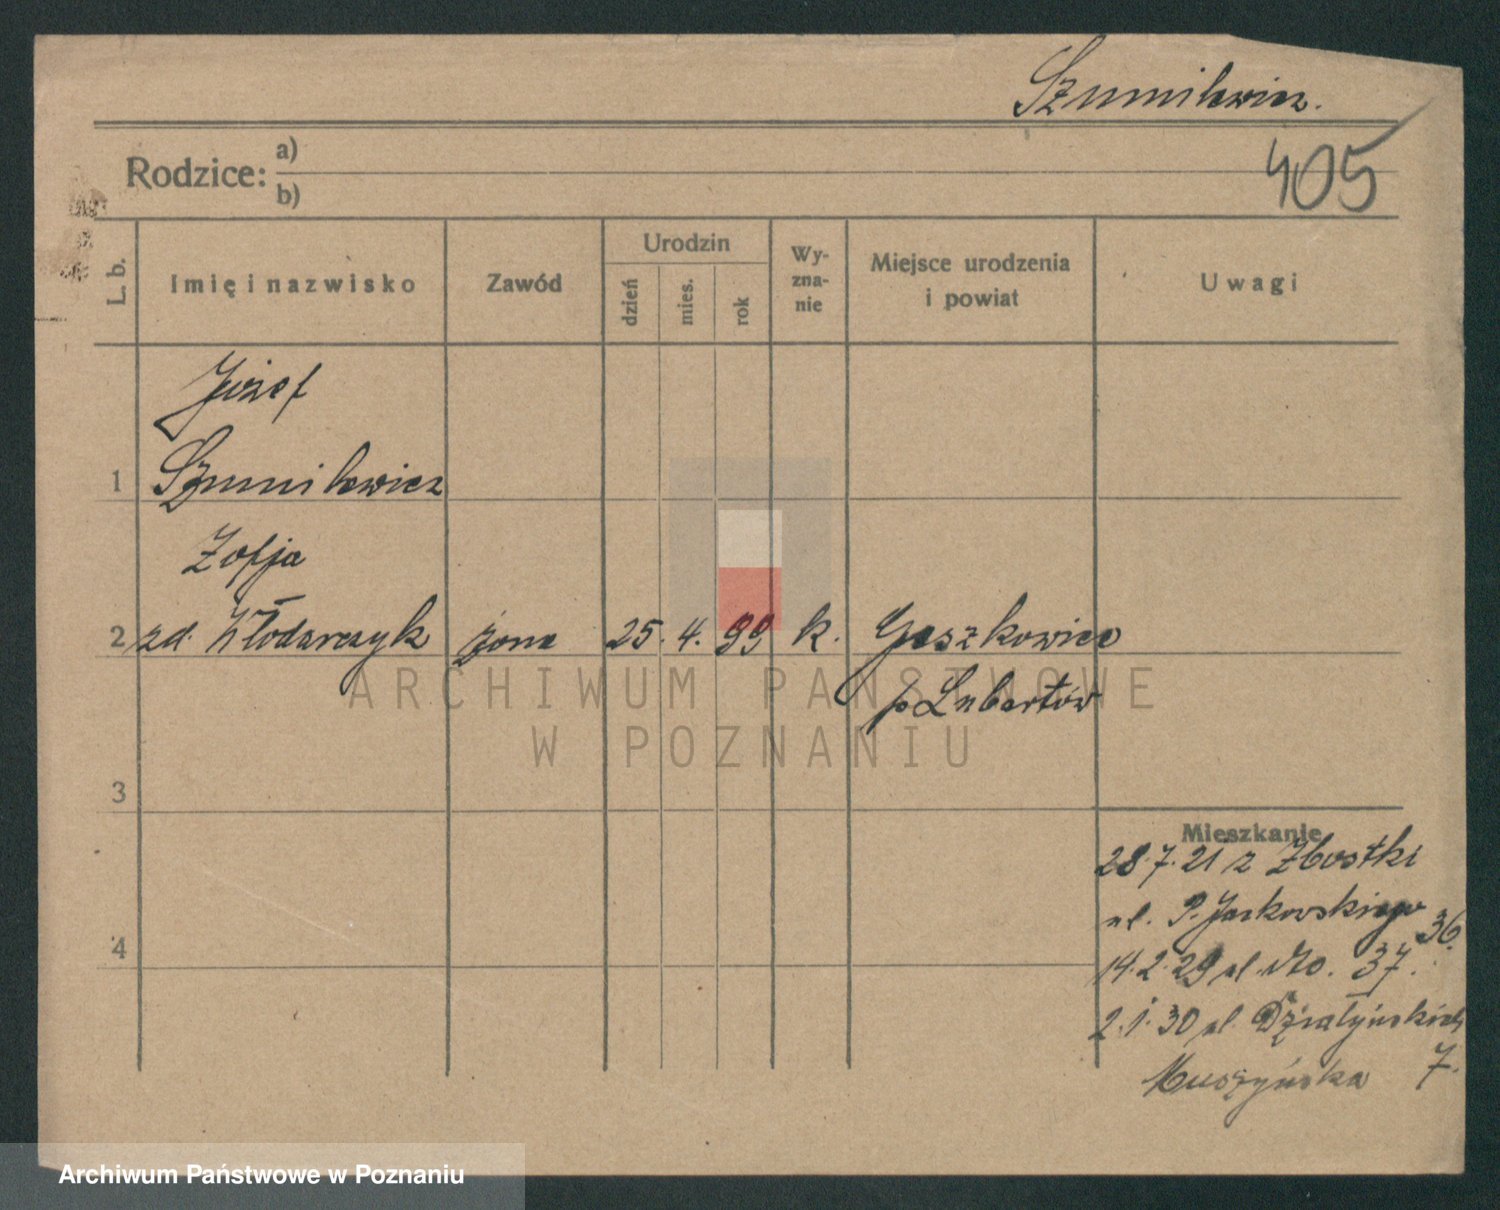 Szumilewicz.
405
Rodzice: a)
b)
L. b.
Imię i nazwisko
Zawód
Urodzin
dzień
mies.
rok
Wy-
zna-
nie
Miejsce urodzenia
i powiat
Uwagi
Józef
1 Szumilewicz
Zofja
2 zd. Włodarczyk żona 25. 4. 99 k.
p. Lubartów
ARCHIWUM PAŃSTWOWE
W POZNANIU
3
4
Mieszkanie
28.7.21 z
ul. P. Jackowskiego 36.
14.2.29 ul. 37.
2.1.30 ul. Działyńskich 7.
Muszyńska
Archiwum Państwowe w Poznaniu